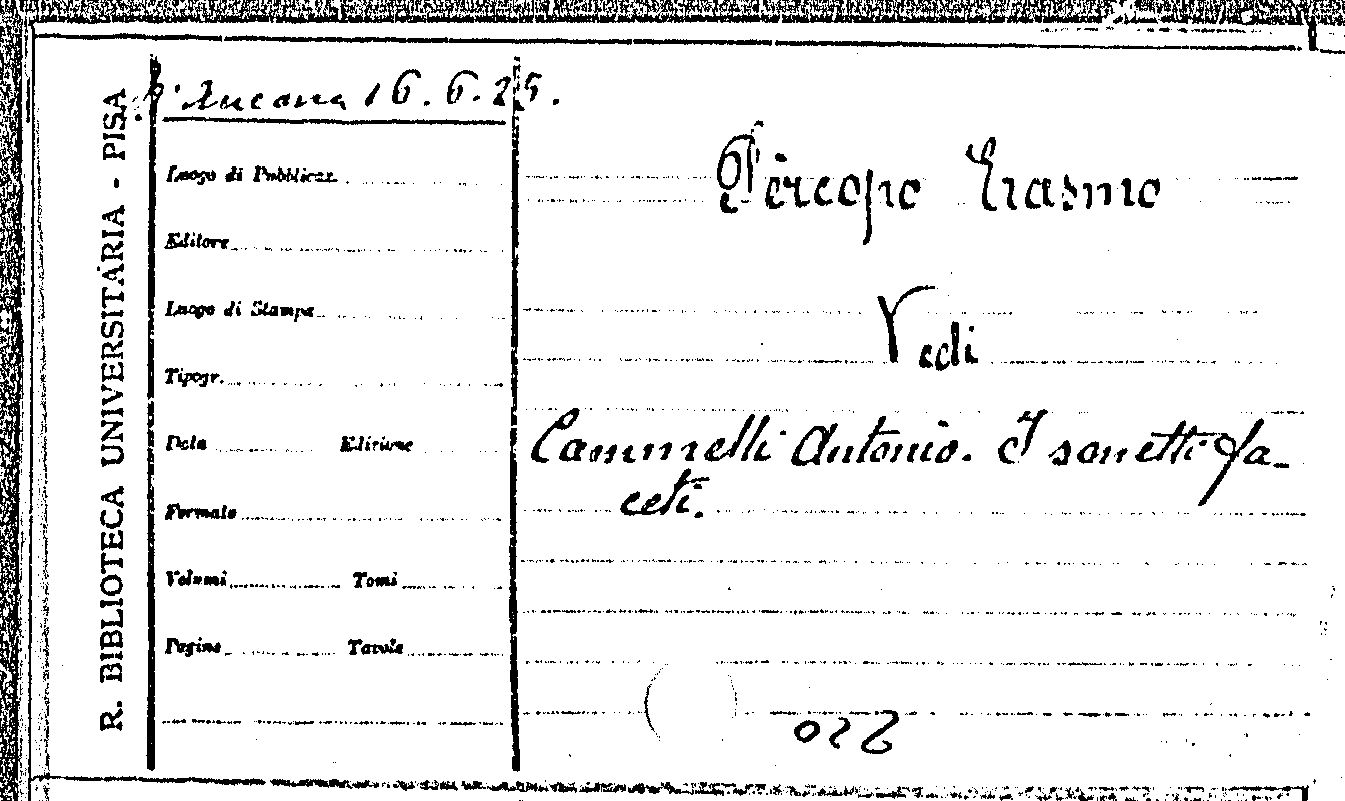 R. BIBLIOTECA UNIVERSITARIA - PISA
D'Ancona 16. 6. 25.
Luogo di Pubblicaz.
Editore
Luogo di Stampa
Tipogr.
Data Edizione
Formato
Volumi Tomi
Pagine Tavole
Pèrcopo Erasmo
Vedi
Cammelli Antonio. I sonetti fa-
ceti.